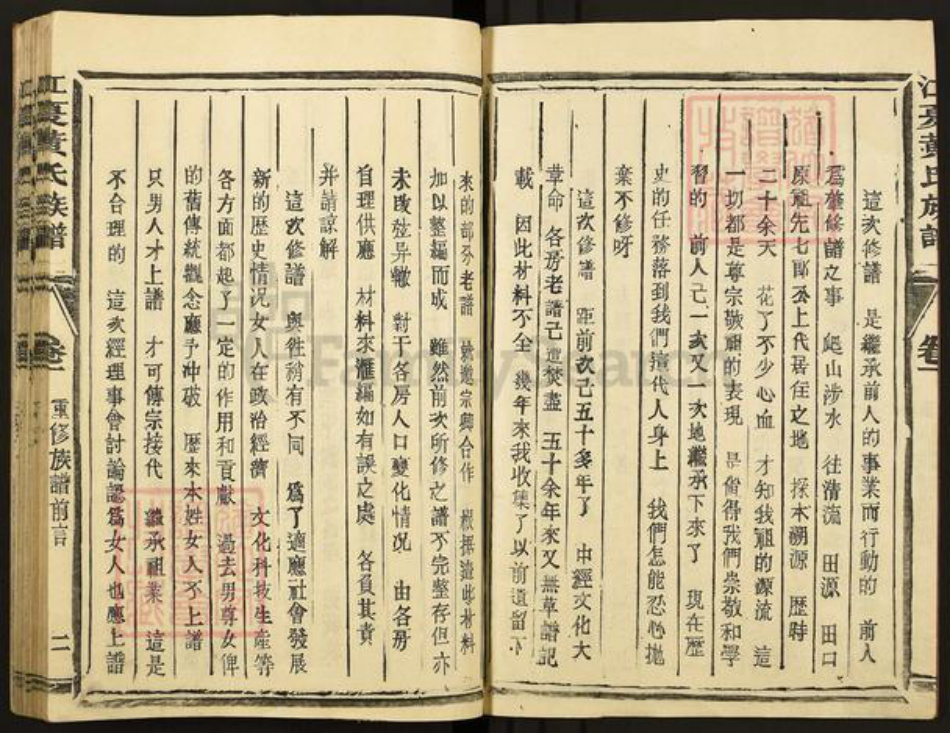 江夏黃氏族譜
卷一
這次修譜 是繼承前人的事業而行動的 前人
爲肇修譜之事 爬山涉水 往清流 田源 田口
原祖先七郎公上代居住之地 探本溯源 歷時
二十余天 花了不少心血 才知我祖的源流 這
一切都是尊宗敬祖的表現 是值得我們崇敬和學
習的 前人已一次又一次地繼承下來了 現在歷
史的任務落到我們這代人身上 我們怎能忍心拋
棄不修呀
這次修譜 距前次已五十多年了 中經文化大
革命 各房老譜已遭焚盡 五十余年來又無草譜記
載 因此材料不全 幾年來我收集了以前遺留下
來的部分老譜 姚邀宗鄉合作 根据這些材料
加以整編而成 雖然前次所修之譜不完整存但亦
未改弦异轍 對于各房人口變化情况 由各房
自理供應 材料來滙編如有誤之處 各負其責
并請諒解
這次修譜 與往稍有不同 爲了適應社會發展
新的歷史情况女人在政治經濟 文化科技生産等
各方面都起了一定的作用和貢獻 過去男尊女俾
的舊傳統觀念應予冲破 歷來本姓女人不上譜
只男人才上譜 才可傳宗接代 繼承祖業 這是
不合理的 這次經理事會討論認爲女人也應上譜
江夏黃氏族譜
卷一
重修族譜前言
二
FamilySearch